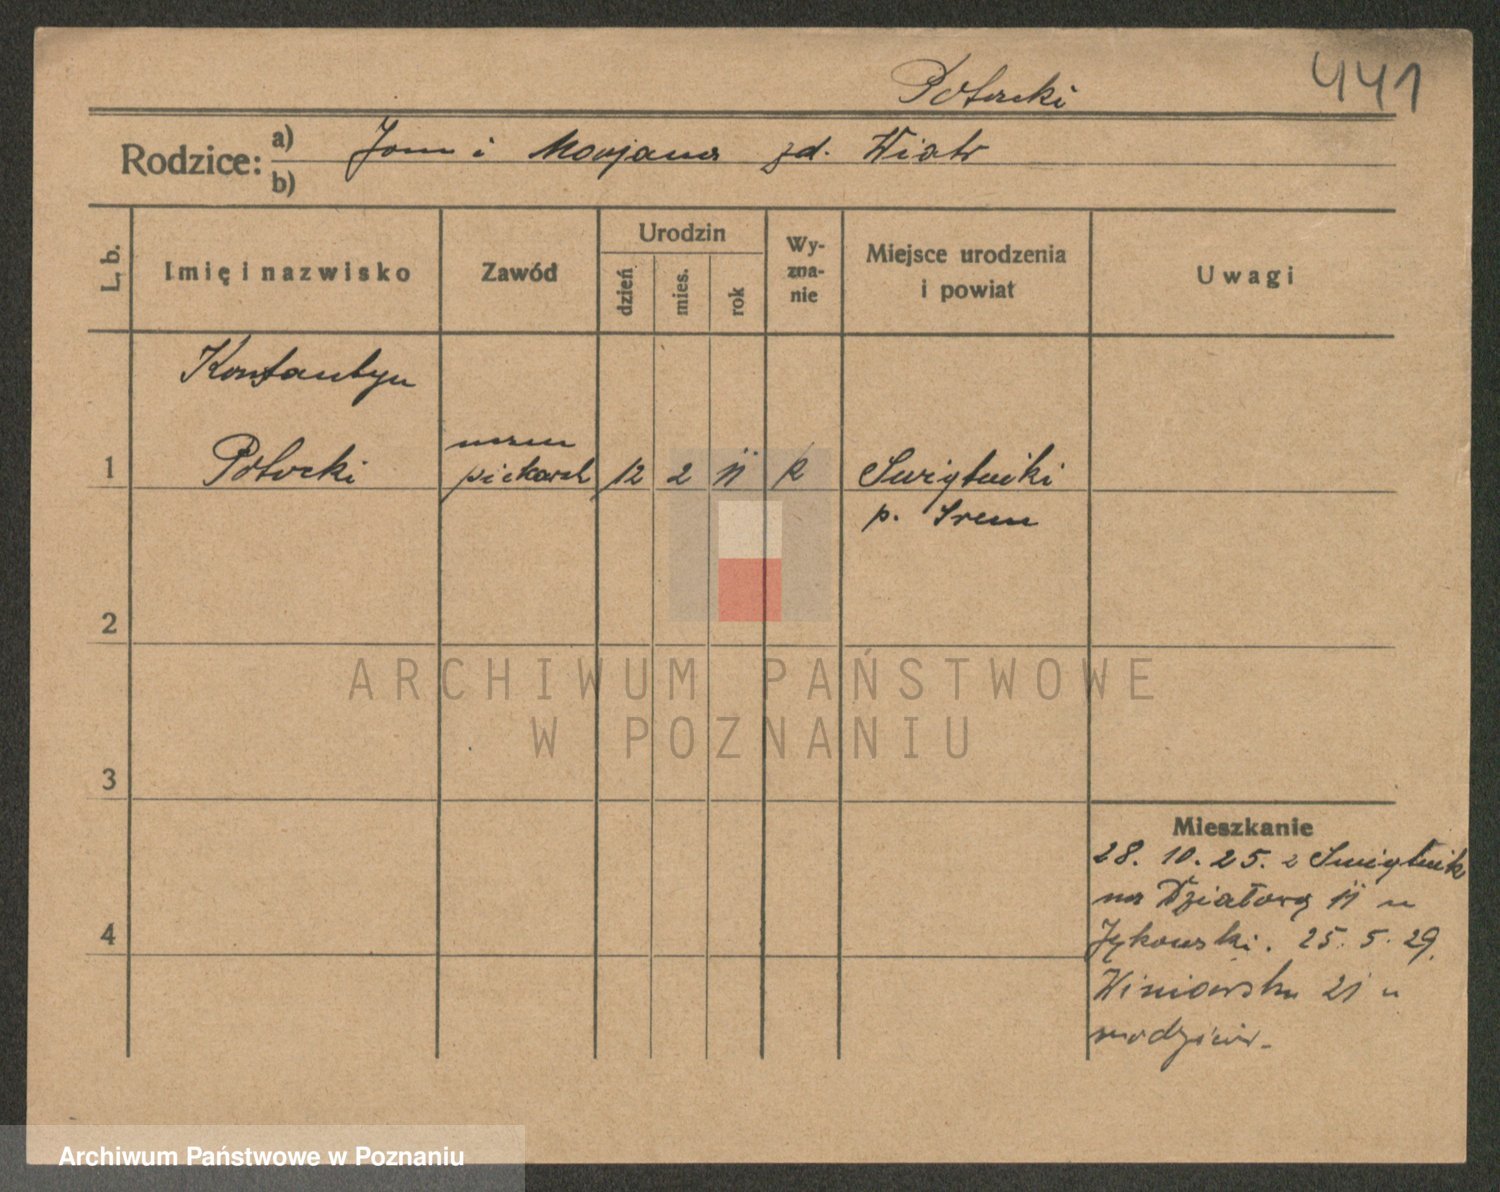 Potocki
441
Rodzice:
a) Jan i Marjanna zd. Wiatr
b)
L. b.
Imię i nazwisko
Zawód
Urodzin
dzień
mies.
rok
Wy-
zna-
nie
Miejsce urodzenia
i powiat
Uwagi
Konstantyn
1 Potocki
uczeń
piekarski 12 2 11 k Świątniki
p. Śrem
2
3
4
Mieszkanie
28. 10. 25. z Świątnik
na Działową 11 u
25. 5. 29.
21 u
rodziców.
ARCHIWUM PAŃSTWOWE
W POZNANIU
Archiwum Państwowe w Poznaniu